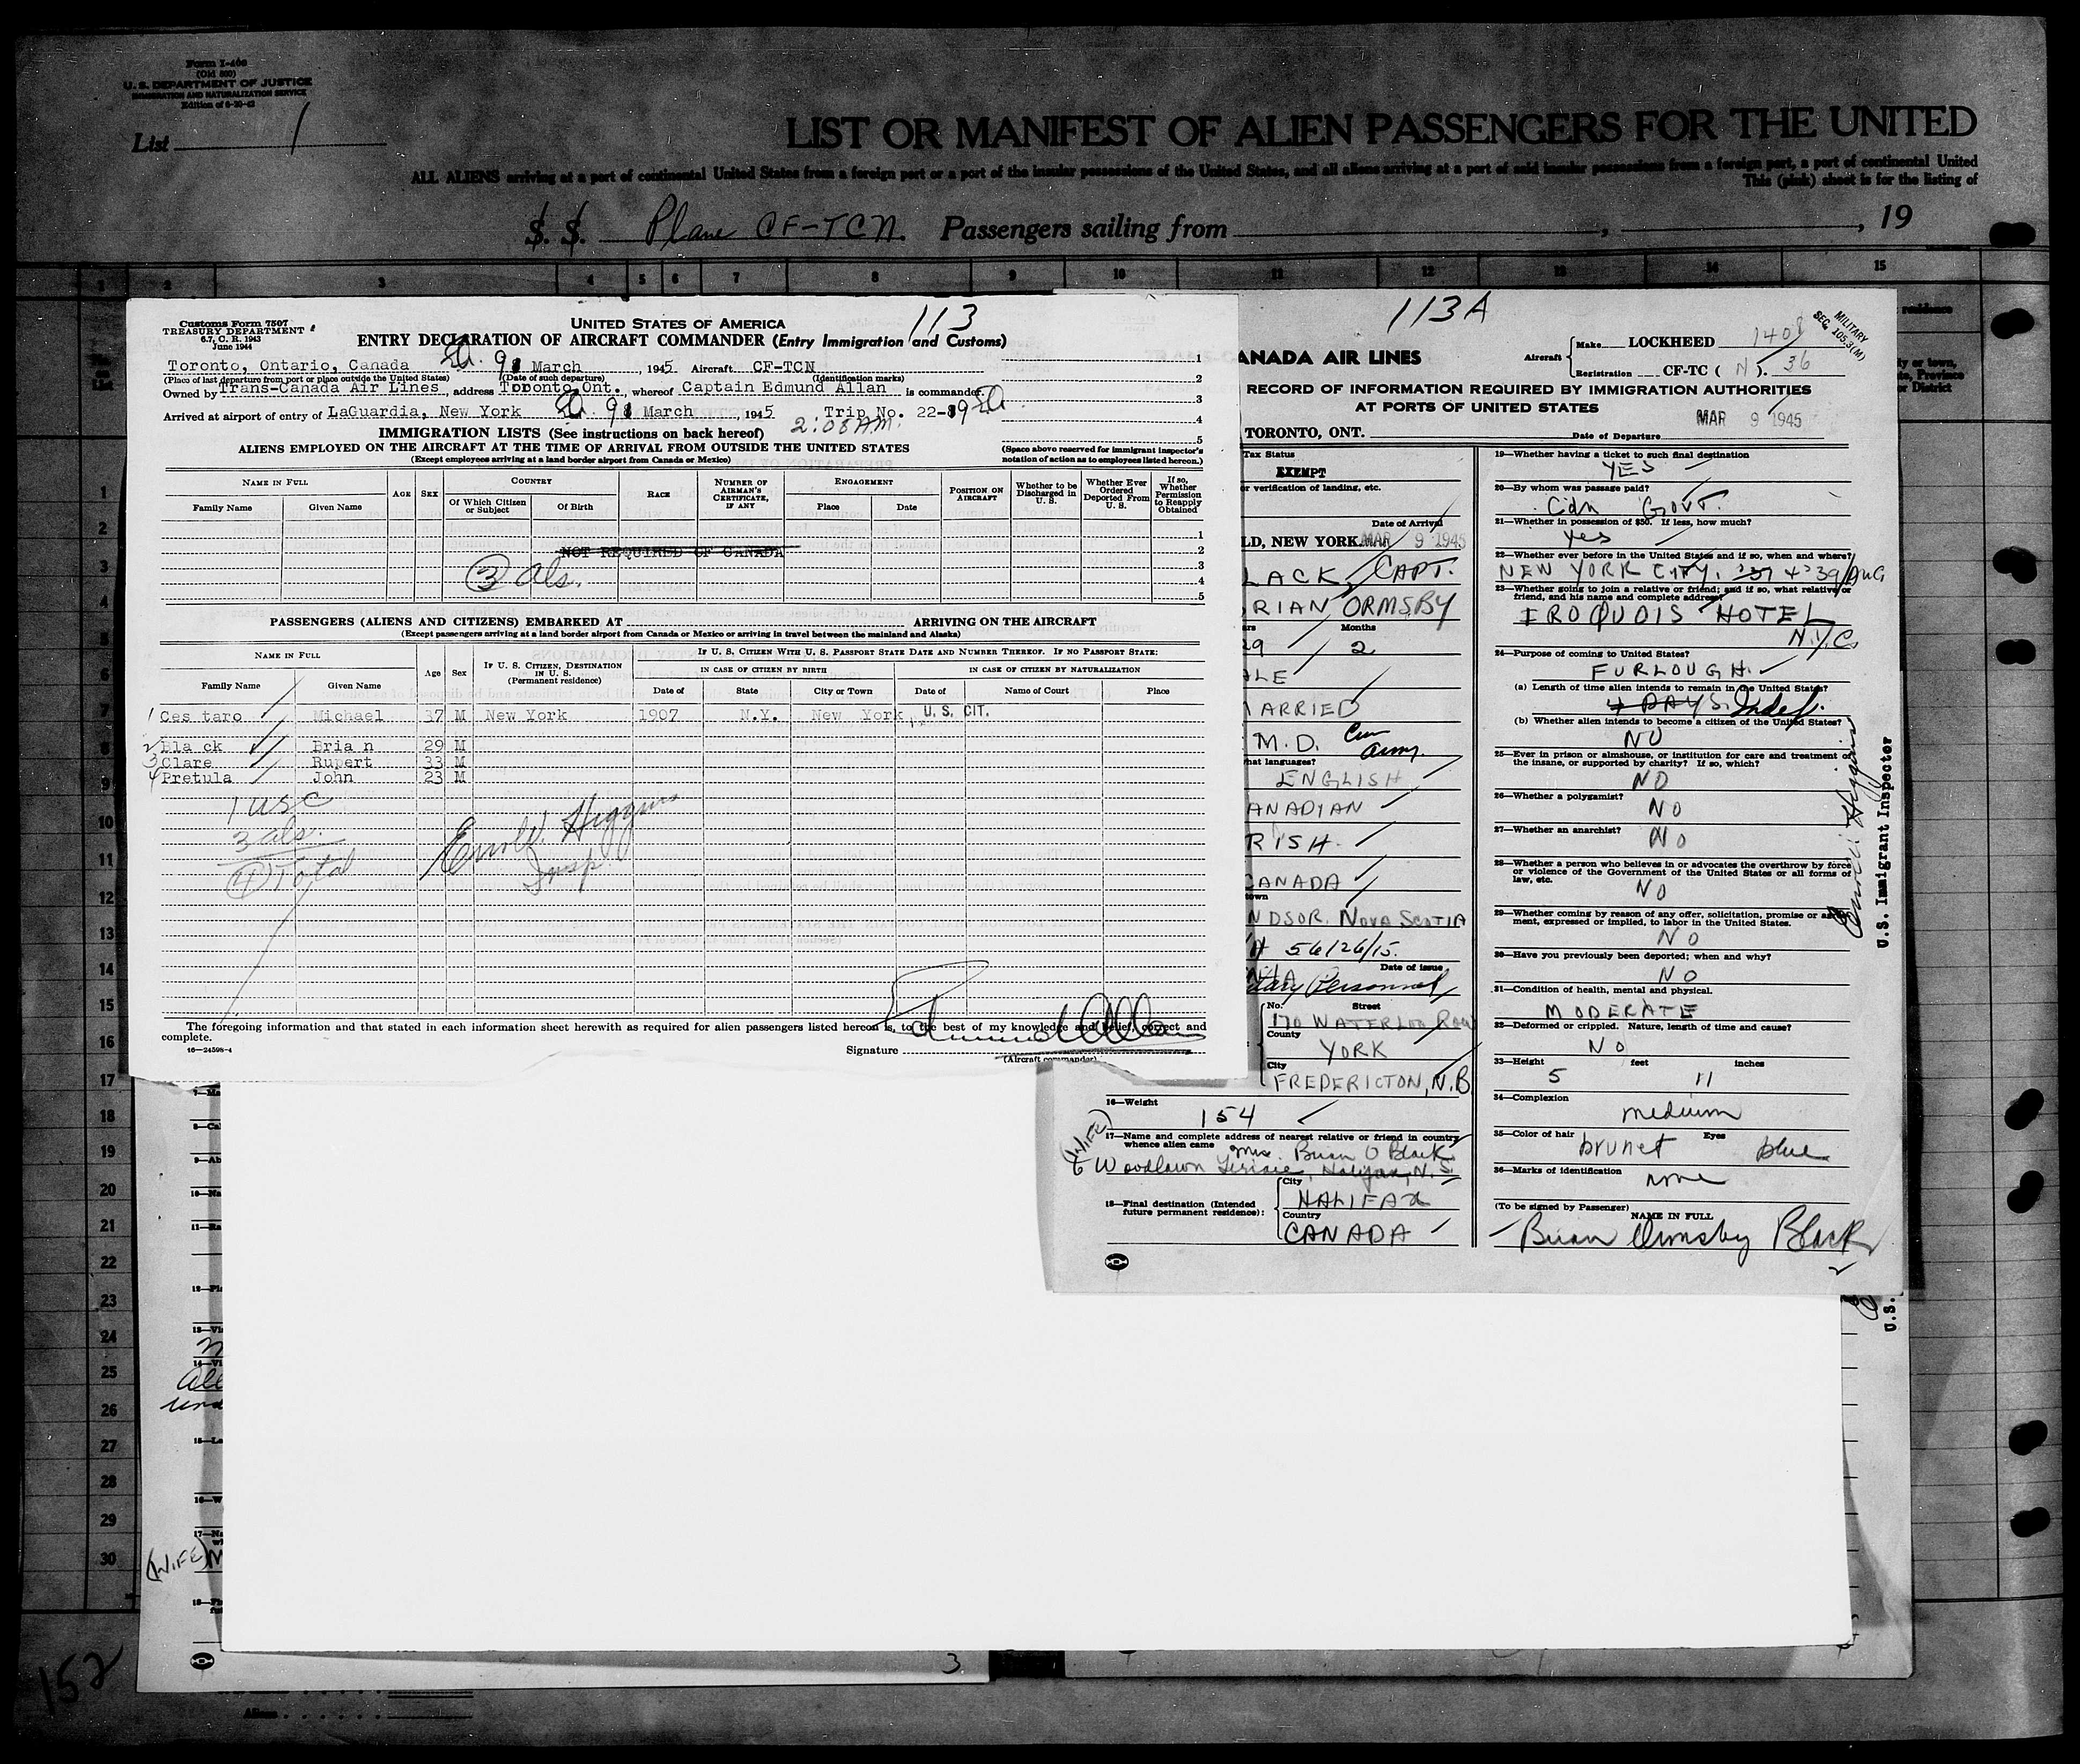 Form I-466
(Old 500)
U. S. DEPARTMENT OF JUSTICE
IMMIGRATION AND NATURALIZATION SERVICE
List 1
LIST OR MANIFEST OF ALIEN PASSENGERS FOR THE UNITED
ALL ALIENS arriving at a port of continental United States from a foreign port or a port of the insular possessions of the United States, and all aliens arriving at a port of said insular possessions from a foreign port, a port of continental United
This (pink) sheet is for the listing of
S. S. Plane CF-TCN. Passengers sailing from , , 19
1 2 3 4 5 6 7 8 9 10 11 12 13 14 15
113
Customs Form 7507
TREASURY DEPARTMENT
6.7, C. R. 1943
June 1944
UNITED STATES OF AMERICA
ENTRY DECLARATION OF AIRCRAFT COMMANDER (Entry Immigration and Customs)
Toronto, Ontario, Canada 9 March , 1945 Aircraft CF-TCN
(Place of last departure from port or place outside the United States) (Date of such departure) (Identification marks)
Owned by Trans-Canada Air Lines , address Toronto Ont. , whereof Captain Edmund Allan is commander
Arrived at airport of entry of LaGuardia, New York 9 March 1945 Trip No. 22-9
2:08 AM.
IMMIGRATION LISTS (See instructions on back hereof)
ALIENS EMPLOYED ON THE AIRCRAFT AT THE TIME OF ARRIVAL FROM OUTSIDE THE UNITED STATES
(Except employees arriving at a land border airport from Canada or Mexico)
1
2
3
4
5
(Space above reserved for immigrant inspector's notation of action as to employees listed hereon.)
NAME IN FULL AGE SEX COUNTRY RACE NUMBER OF AIRMAN'S CERTIFICATE, IF ANY ENGAGEMENT POSITION ON AIRCRAFT Whether to be Discharged in U. S. Whether Ever Ordered Deported From U. S. If so, Whether Permission to Reapply Obtained
Family Name Given Name Of Which Citizen or Subject Of Birth Place Date
NOT REQUIRED OF CANADA
3 als.
1
2
3
4
5
PASSENGERS (ALIENS AND CITIZENS) EMBARKED AT ARRIVING ON THE AIRCRAFT
(Except passengers arriving at a land border airport from Canada or Mexico or arriving in travel between the mainland and Alaska)
NAME IN FULL Age Sex IF U. S. CITIZEN, DESTINATION IN U. S. (Permanent residence) IF U. S. CITIZEN WITH U. S. PASSPORT STATE DATE AND NUMBER THEREOF. IF NO PASSPORT STATE:
IN CASE OF CITIZEN BY BIRTH IN CASE OF CITIZEN BY NATURALIZATION
Family Name Given Name Date of State City or Town Date of Name of Court Place
1 Cestaro Michael 37 M New York 1907 N.Y. New York U. S. CIT.
2 Black Brian 29 M
3 Clare Rupert 33 M
4 Pretula John 23 M
1 USC
3 als.
4 Total
Emil W. Higgins
Insp.
The foregoing information and that stated in each information sheet herewith as required for alien passengers listed hereon is, to the best of my knowledge and belief, correct and complete.
Signature Edmund Allan
(Aircraft commander)
16-24598-4
113A
ANADA AIR LINES
Aircraft Make LOCKHEED 1408
Registration CF-TC ( N ). 36
MILITARY
SEC. 105.3(M)
RECORD OF INFORMATION REQUIRED BY IMMIGRATION AUTHORITIES
AT PORTS OF UNITED STATES
MAR 9 1945
TORONTO, ONT. Date of Departure
Tax Status
EXEMPT
or verification of landing, etc.
Date of Arrival
LD, NEW YORK. MAR 9 1945
LACK, CAPT.
RIAN ORMSBY
Months
29 2
ALE
MARRIED
M.D. Can Army.
hat languages?
ENGLISH
ANADIAN
RISH.
CANADA
town
NDSOR. NOVA SCOTIA
56/26/15.
Date of issue
itary Personnel
No. Street
170 WATERLOO ROW
County
YORK
City
FREDERICTON, N.B.
16—Weight
154
17—Name and complete address of nearest relative or friend in country whence alien came
(WIFE) Mrs. Brian O Black
6 Woodlawn Terrace, Halifax, N.S.
18—Final destination (Intended future permanent residence):
City
HALIFAX
Country
CANADA
19—Whether having a ticket to such final destination
YES
20—By whom was passage paid?
Cdn GOVT.
21—Whether in possession of $50. If less, how much?
Yes
22—Whether ever before in the United States and if so, when and where?
NEW YORK CITY. '37 & '39/AUG
23—Whether going to join a relative or friend; and if so, what relative or friend, and his name and complete address
IROQUOIS HOTEL
N.Y.C.
24—Purpose of coming to United States?
FURLOUGH.
(a) Length of time alien intends to remain in the United States?
4 DAYS. Indef.
(b) Whether alien intends to become a citizen of the United States?
NO
25—Ever in prison or almshouse, or institution for care and treatment of the insane, or supported by charity? If so, which?
NO
26—Whether a polygamist?
NO
27—Whether an anarchist?
NO
28—Whether a person who believes in or advocates the overthrow by force or violence of the Government of the United States or all forms of law, etc.
NO
29—Whether coming by reason of any offer, solicitation, promise or agreement, expressed or implied, to labor in the United States.
NO
30—Have you previously been deported; when and why?
NO
31—Condition of health, mental and physical.
MODERATE
32—Deformed or crippled. Nature, length of time and cause?
NO
33—Height feet inches
5 11
34—Complexion
medium
35—Color of hair brunet Eyes blue
36—Marks of identification
none
(To be signed by Passenger)
NAME IN FULL
Brian Ormsby Black
U.S. Immigrant Inspector
(WIFE)
152
3
Aliens